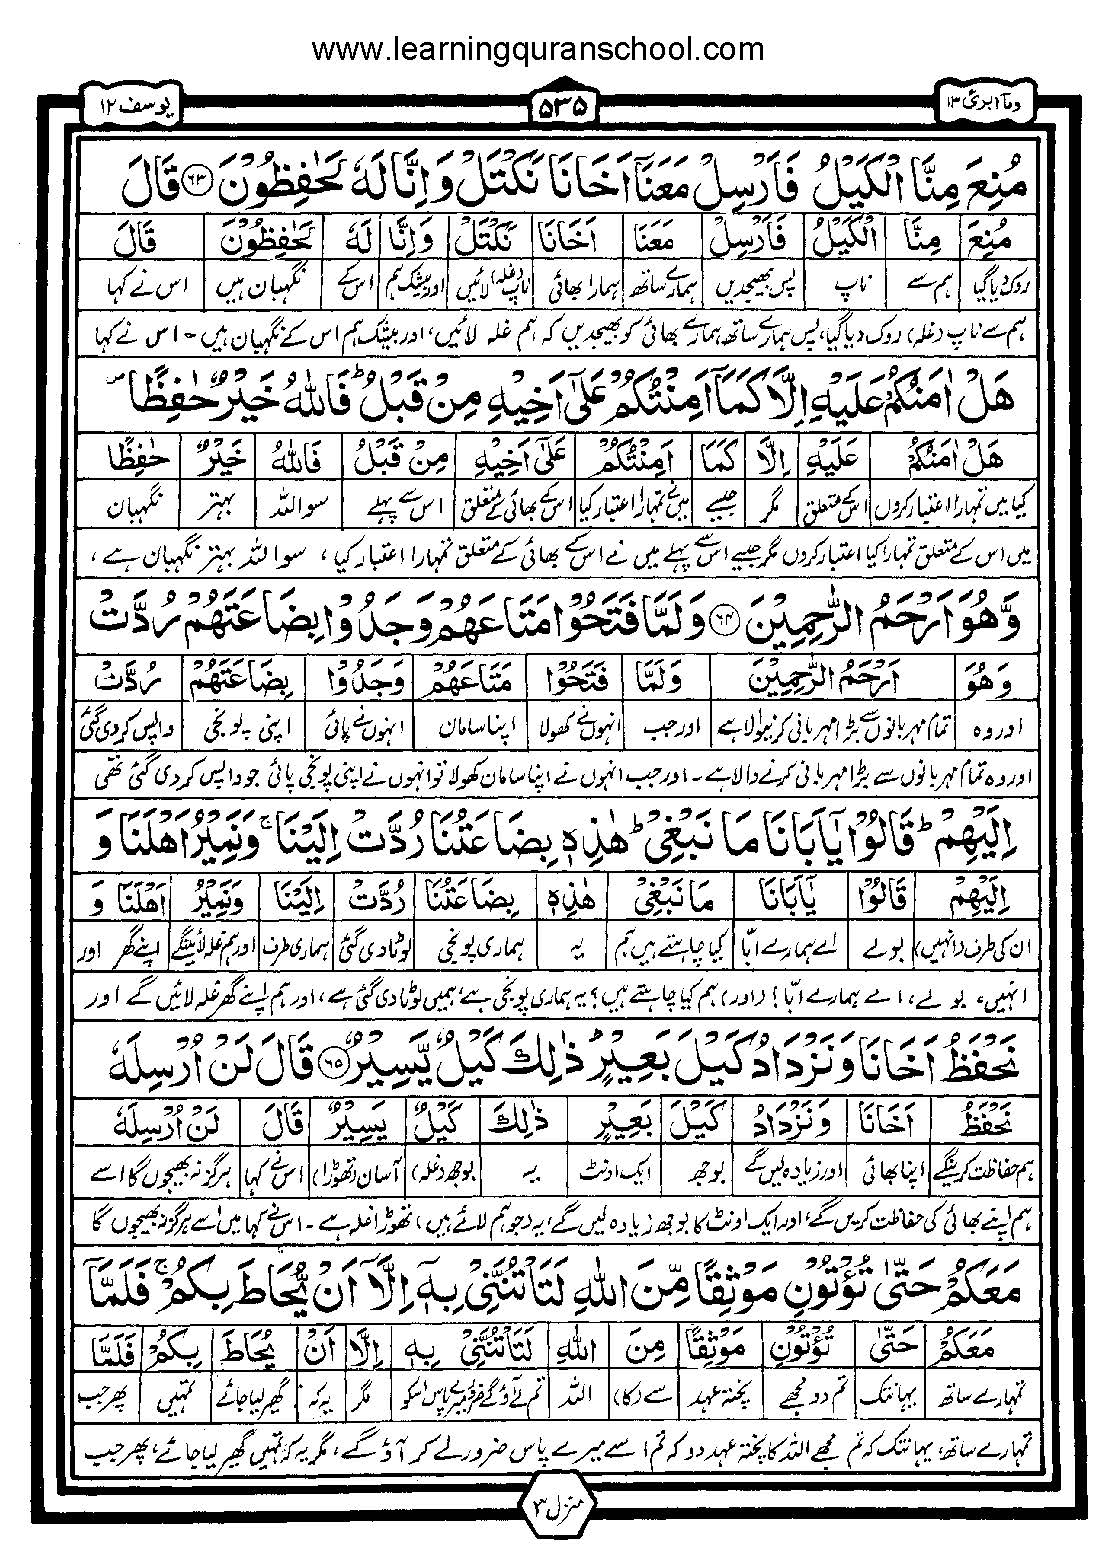 www.learningquranschool.com
یوسف ۱۲
۵۳۵
وما ابرئ ۱۳
مُنِعَ مِنَّا الْكَيْلُ فَاَرْسِلْ مَعَنَآ اَخَانَا نَكْتَلْ وَاِنَّا لَهٗ لَحٰفِظُوْنَ ۶۳ قَالَ
مُنِعَ مِنَّا الْكَيْلُ فَاَرْسِلْ مَعَنَا اَخَانَا نَكْتَلْ وَاِنَّا لَهٗ لَحٰفِظُوْنَ قَالَ
روک دیا گیا ہم سے ناپ پس بھیجدیں ہمارے ساتھ ہمارا بھائی ناپ (غلہ) لائیں اور بیشک ہم اس کے نگہبان ہیں اس نے کہا
ہم سے ناپ (غلہ) روک دیا گیا، پس ہمارے ساتھ ہمارے بھائی کو بھیجدیں کہ ہم غلہ لائیں، اور بیشک ہم اس کے نگہبان ہیں - اس نے کہا
هَلْ اٰمَنُكُمْ عَلَيْهِ اِلَّا كَمَآ اَمِنْتُكُمْ عَلٰٓى اَخِيْهِ مِنْ قَبْلُ ؕ فَاللّٰهُ خَيْرٌ حٰفِظًا ۪
هَلْ اٰمَنُكُمْ عَلَيْهِ اِلَّا كَمَا اَمِنْتُكُمْ عَلٰٓى اَخِيْهِ مِنْ قَبْلُ فَاللّٰهُ خَيْرٌ حٰفِظًا
کیا میں تمہارا اعتبار کروں اس کے متعلق مگر جیسے میں نے تمہارا اعتبار کیا اس کے بھائی کے متعلق اس سے پہلے سو اللہ بہتر نگہبان
میں اس کے متعلق تمہارا کیا اعتبار کروں مگر جیسے اس سے پہلے میں نے اس کے بھائی کے متعلق تمہارا اعتبار کیا، سو اللہ بہتر نگہبان ہے،
وَّهُوَ اَرْحَمُ الرّٰحِمِيْنَ ۶۴ وَلَمَّا فَتَحُوْا مَتَاعَهُمْ وَجَدُوْا بِضَاعَتَهُمْ رُدَّتْ
وَهُوَ اَرْحَمُ الرّٰحِمِيْنَ وَلَمَّا فَتَحُوْا مَتَاعَهُمْ وَجَدُوْا بِضَاعَتَهُمْ رُدَّتْ
اور وہ تمام مہربانوں سے بڑا مہربانی کرنیوالا ہے اور جب انہوں نے کھولا اپنا سامان انہوں نے پائی اپنی پونجی واپس کر دی گئی
اور وہ تمام مہربانوں سے بڑا مہربانی کرنے والا ہے - اور جب انہوں نے اپنا سامان کھولا تو انہوں نے اپنی پونجی پائی جو واپس کر دی گئی تھی
اِلَيْهِمْ ؕ قَالُوْا يٰٓاَبَانَا مَا نَبْغِيْ ؕ هٰذِهٖ بِضَاعَتُنَا رُدَّتْ اِلَيْنَا ۚ وَنَمِيْرُ اَهْلَنَا وَ
اِلَيْهِمْ قَالُوْا يٰٓاَبَانَا مَا نَبْغِيْ هٰذِهٖ بِضَاعَتُنَا رُدَّتْ اِلَيْنَا وَنَمِيْرُ اَهْلَنَا وَ
ان کی طرف (انہیں) بولے اے ہمارے ابّا کیا چاہتے ہیں ہم یہ ہماری پونجی لوٹا دی گئی ہماری طرف اور ہم غلہ لائینگے اپنے گھر اور
انہیں، بولے، اے ہمارے ابّا! (اور) ہم کیا چاہتے ہیں؟ یہ ہماری پونجی ہے، ہمیں لوٹا دی گئی ہے، اور ہم اپنے گھر غلہ لائیں گے اور
نَحْفَظُ اَخَانَا وَنَزْدَادُ كَيْلَ بَعِيْرٍ ؕ ذٰلِكَ كَيْلٌ يَّسِيْرٌ ۶۵ قَالَ لَنْ اُرْسِلَهٗ
نَحْفَظُ اَخَانَا وَنَزْدَادُ كَيْلَ بَعِيْرٍ ذٰلِكَ كَيْلٌ يَسِيْرٌ قَالَ لَنْ اُرْسِلَهٗ
ہم حفاظت کرینگے اپنا بھائی اور زیادہ لیں گے بوجھ ایک اونٹ یہ بوجھ (غلہ) آسان (تھوڑا) اس نے کہا ہرگز نہ بھیجوں گا اسے
ہم اپنے بھائی کی حفاظت کریں گے، اور ایک اونٹ کا بوجھ زیادہ لیں گے، یہ (جو ہم لائے ہیں) تھوڑا غلہ ہے - اس نے کہا میں اسے ہرگز نہ بھیجوں گا
مَعَكُمْ حَتّٰى تُؤْتُوْنِ مَوْثِقًا مِّنَ اللّٰهِ لَتَاْتُنَّنِيْ بِهٖٓ اِلَّآ اَنْ يُّحَاطَ بِكُمْ ۚ فَلَمَّآ
مَعَكُمْ حَتّٰى تُؤْتُوْنِ مَوْثِقًا مِنَ اللّٰهِ لَتَاْتُنَّنِيْ بِهٖ اِلَّا اَنْ يُحَاطَ بِكُمْ فَلَمَّا
تمہارے ساتھ یہانتک تم دو مجھے پختہ عہد سے (کا) اللہ تم لے آؤ گے ضرور میرے پاس اسکو مگر یہ کہ گھیر لیا جائے تمہیں پھر جب
تمہارے ساتھ، یہانتک کہ تم مجھے اللہ کا پختہ عہد دو کہ تم اسے میرے پاس ضرور لے کر آؤ گے، مگر یہ کہ تمہیں گھیر لیا جائے، پھر جب
منزل ۳